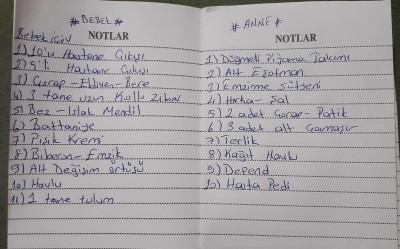 # BEBEK #
Bebek için NOTLAR
1) 10'lu Hastane Çıkışı
2) 5'li Hastane Çıkışı
3) Çorap - Eldiven - Bere
4) 3 tane uzun Kollu Zıbın
5) Bez - Islak Mendil
6) Battaniye
7) Pişik Kremi
8) Biberon - Emzik
9) Alt Değişim örtüsü
10) Havlu
11) 1 tane tulum
# ANNE #
NOTLAR
1) Düğmeli Pijama Takımı
2) Alt Eşofman
3) Emzirme sütyeni
4) Hırka - Şal
5) 2 adet Çorap - Patik
6) 3 adet alt Çamaşır
7) Terlik
8) Kağıt Havlu
9) Depend
10) Hasta Pedi